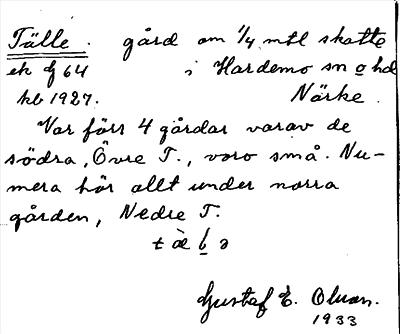 Tälle. gård om 1/4 mtl skatte
ek G 64 i Hardemo sn o hd
kb 1927. Närke.
Var förr 4 gårdar varav de
södra, Övre T., voro små. Nu-
mera hör allt under norra
gården, Nedre T.
Gustaf E. Olson.
1933